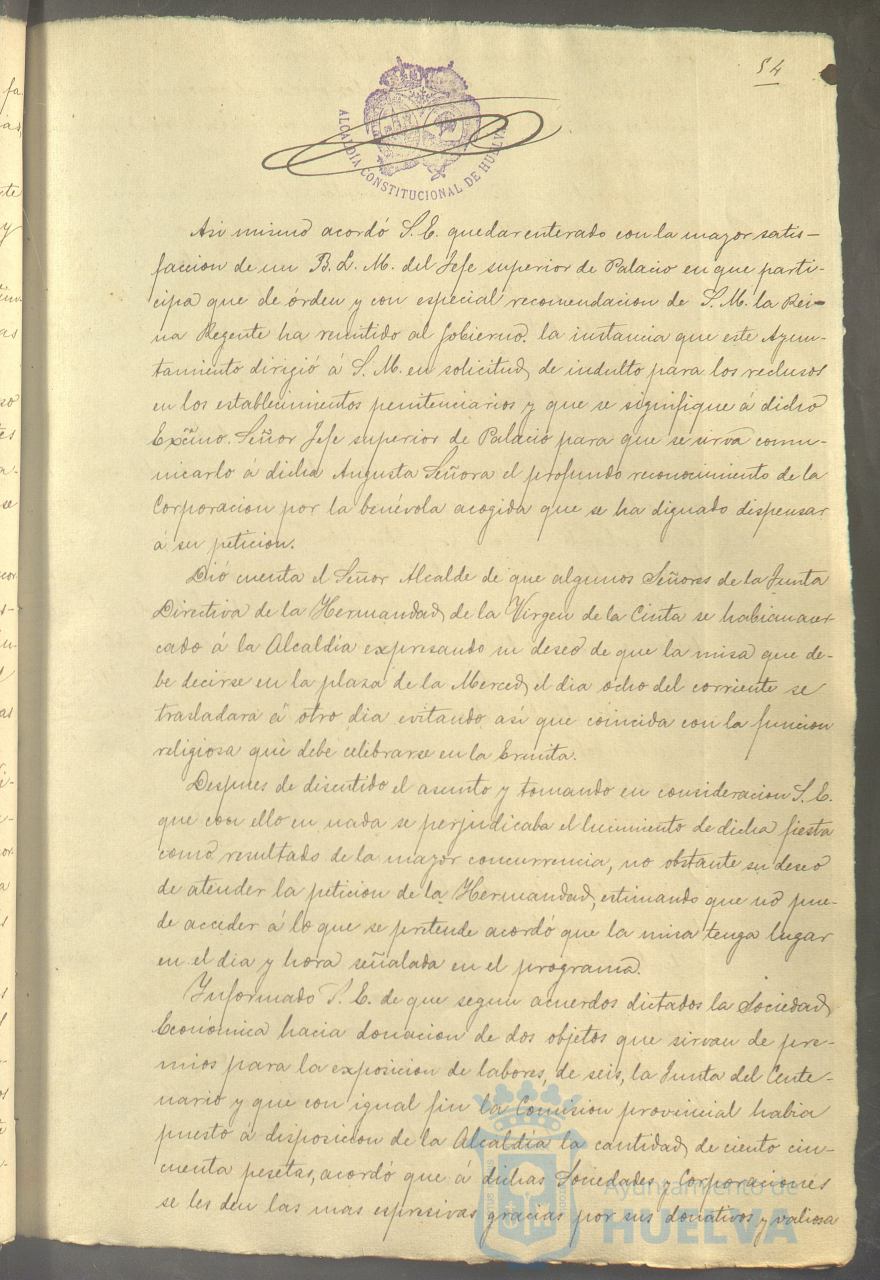 54
ALCALDÍA CONSTITUCIONAL DE HUELVA
Asi mismo acordó S.E. quedar enterado con la mayor satis-
faccion de un B.L.M. del Jefe superior de Palacio en que parti-
cipa que de órden y con especial recomendacion de S.M. la Rei-
na Regente ha remitido al Gobierno. la instancia que este Ayun-
tamiento dirigió á S.M. en solicitud de indulto para los reclusos
en los establecimientos penitenciarios y que se signifique á dicho
Excmo. Señor Jefe superior de Palacio para que se sirva comu-
nicarlo á dicha Augusta Señora el profundo reconocimiento de la
Corporacion por la benévola acogida que se ha dignado dispensar
á su peticion.
Dió cuenta el Señor Alcalde de que algunos Señores de la Junta
Directiva de la Hermandad de la Virgen de la Cinta se habian acer
cado á la Alcaldía expresando su deseo de que la misa que de-
be decirse en la plaza de la Merced el dia ocho del corriente se
trasladara á otro dia evitando así que coincida con la funcion
religiosa que debe celebrarse en la Ermita.
Despues de discutido el asunto y tomando en consideracion S.E.
que con ello en nada se perjudicaba el lucimiento de dicha fiesta
como resultado de la mayor concurrencia, no obstante su deseo
de atender la peticion de la Hermandad, estimando que no pue-
de acceder á lo que se pretende acordó que la misa tenga lugar
en el dia y hora señalada en el programa.
Informado S.E. de que segun acuerdos dictados la Sociedad
Económica hacia donacion de dos objetos que sirvan de pre-
mios para la exposicion de labores, de seis, la Junta del Cente-
nario y que con igual fin la Comision provincial habia
puesto á disposicion de la Alcaldía la cantidad de ciento cin-
cuenta pesetas, acordó que á dichas Sociedades y Corporaciones
se les den las mas espresivas gracias por sus donativos y valiosa
Ayuntamiento de
HUELVA